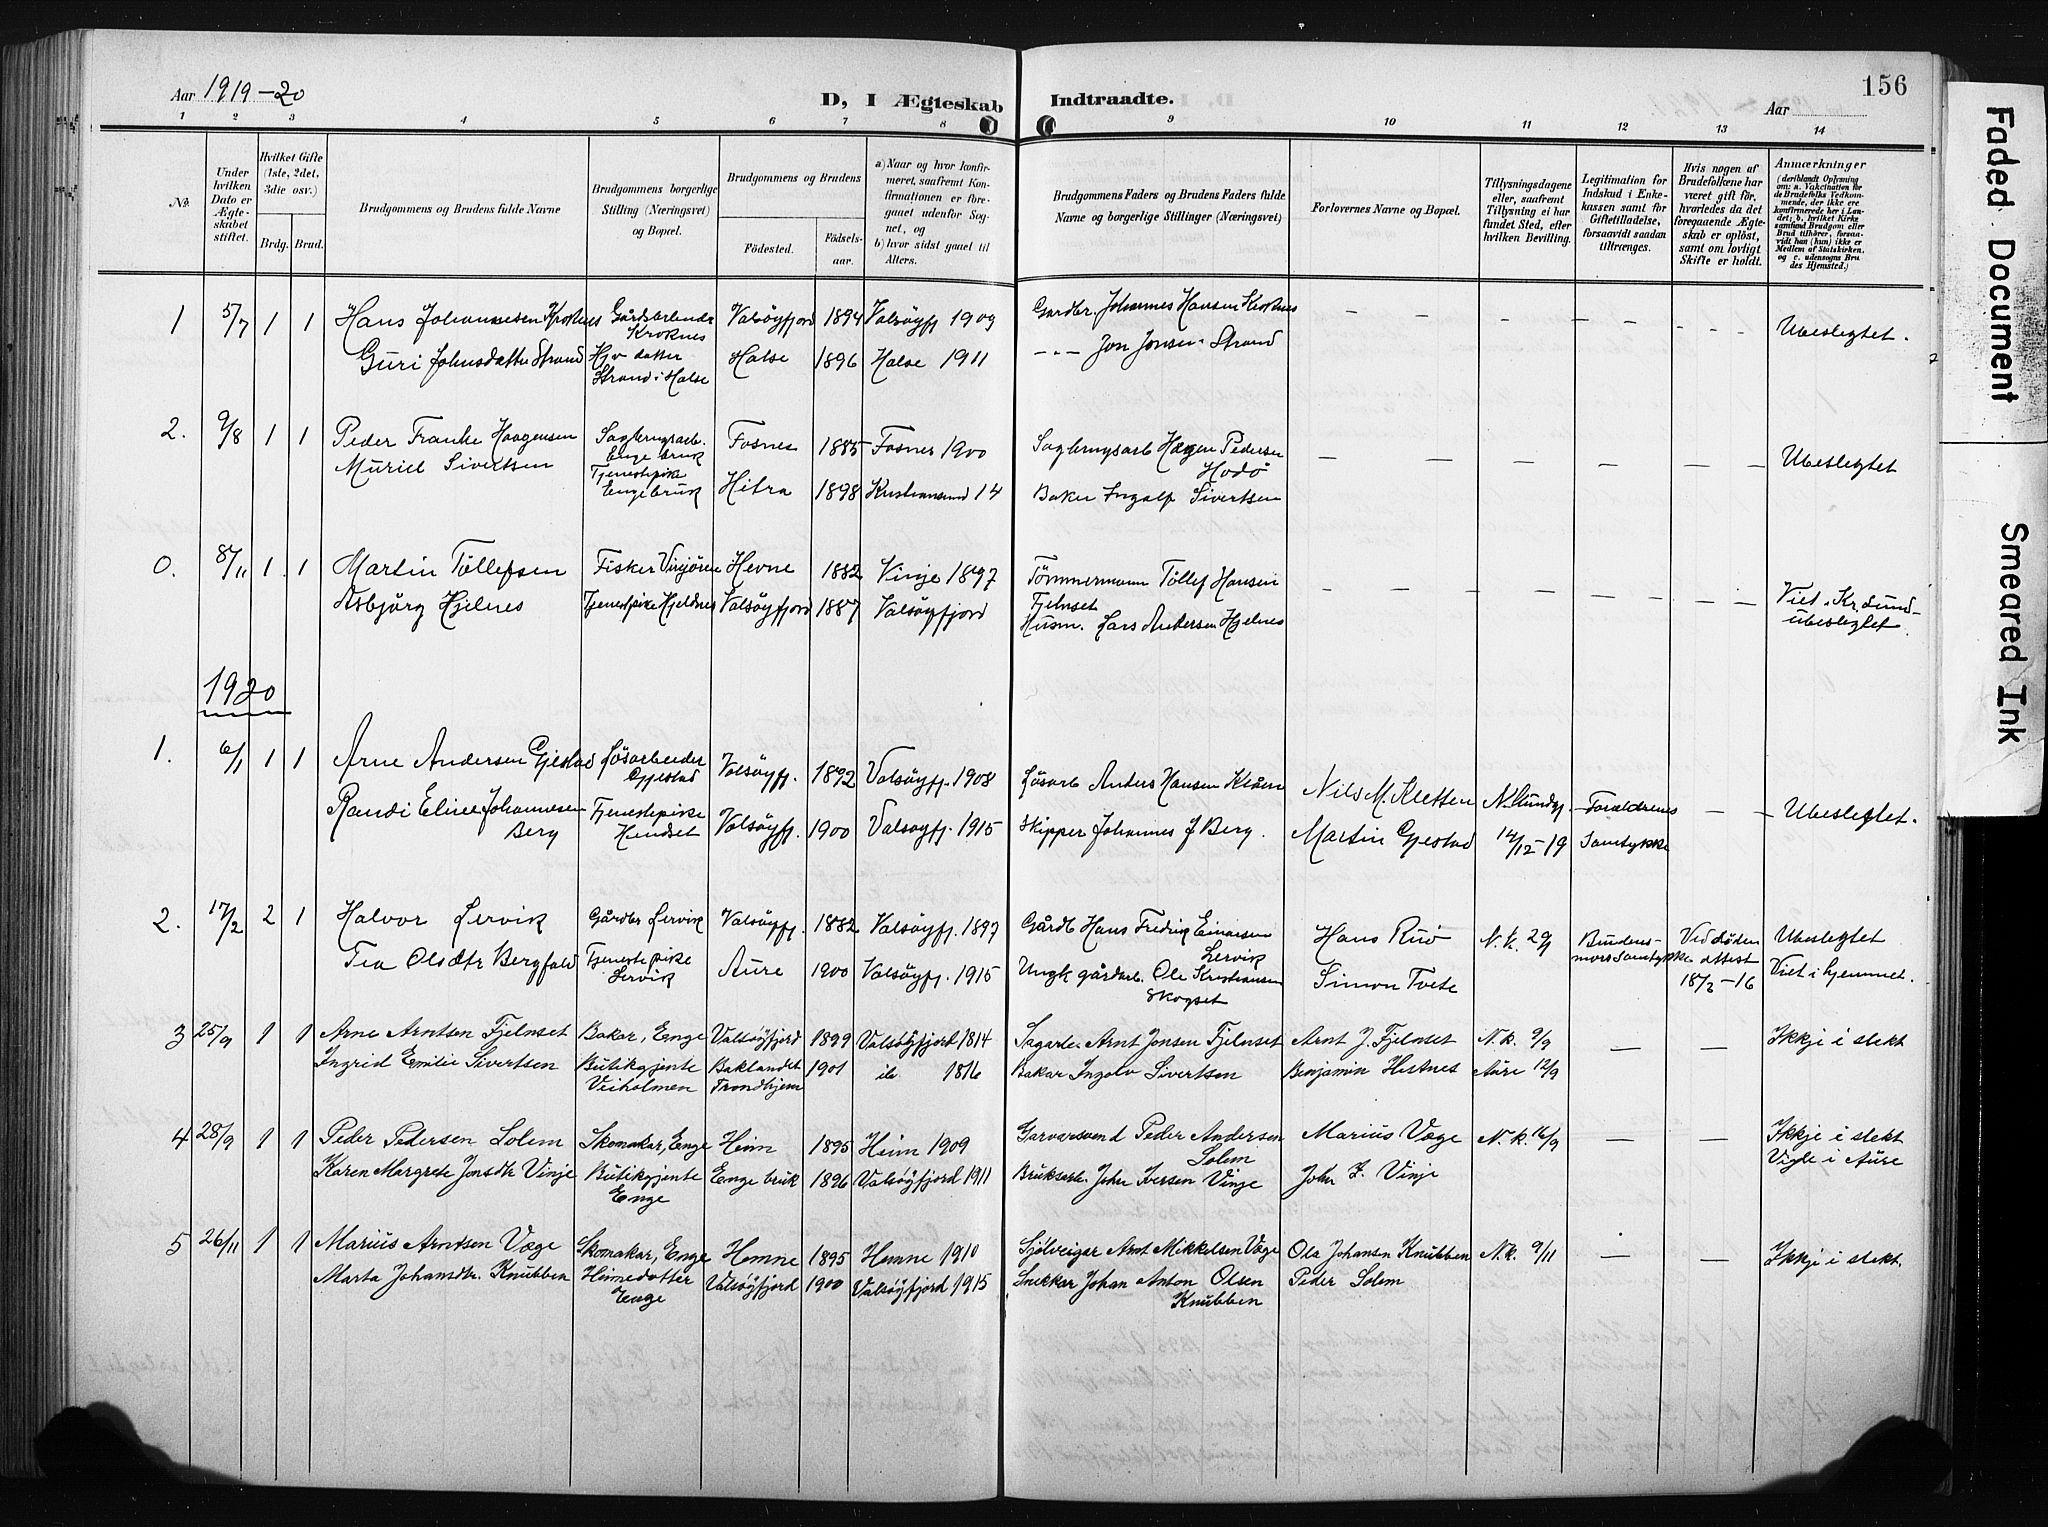 156
Aar 1919-20
D, I Ægteskab Indtraadte.
Aar
1 2 3 4 5 6 7 8 9 10 11 12 13 14
No.
Under hvilken Dato er Ægteskabet stiftet.
Hvilket Gifte (1ste, 2det, 3die osv.)
Brdg. Brud.
Brudgommens og Brudens fulde Navne
Brudgommens borgerlige Stilling (Næringsvei) og Bopæl.
Brudgommens og Brudens
Fødested. Fødselsaar.
a) Naar og hvor konfirmeret, saafremt Konfirmationen er foregaaet udenfor Sognet, og
b) hvor sidst gaaet til Alters.
Brudgommens Faders og Brudens Faders fulde Navne og borgerlige Stillinger (Næringsvei)
Forlovernes Navne og Bopæl.
Tillysningsdagene eller, saafremt Tillysning ei har fundet Sted, efter hvilken Bevilling.
Legitimation for Indskud i Enkekassen samt for Giftetilladelse, forsaavidt saadan tiltrænges.
Hvis nogen af Brudefolkene har været gift før, hvorledes da det foregaaende Ægteskab er opløst, samt om lovligt Skifte er holdt.
Anmærkninger (deriblandt Oplysning om: a. Vakcination for de Brudefolks Vedkommende, der ikke ere konfirmerede her i Landet; b. hvilket Kirkesamfund Brudgom eller Brud tilhører, forsaavidt han (hun) ikke er Medlem af Statskirken. og c. udensogns Brudes Hjemsted.)
1 5/7 1 1 Hans Johannesen Kroknes Gårdsarbeider Kroknes Valsøyfjord 1894 Valsøyfj 1909 Gardbr. Johannes Hansen Kroknes — — — — — Ubeslegtet.
Guri Johnsdatter Strand Hj. datter Strand i Halse Halse 1896 Halse 1911 -"- Jon Jonsen Strand
2. 9/8 1 1 Peder Franke Haagensen Sagbrugsarb. Enge bruk Fosnes 1885 Fosnes 1900 Sagbrugsarb Hagen Pedersen Hodø — — — — — Ubeslegtet
Muriel Sivertsen Tjenestepike Enge bruk Hitra 1898 Kristiansund 14 Baker Ingolf Sivertsen
0. 8/11 1 1 Martin Tøllefsen Fisker Vinjøren Hevne 1882 Vinje 1897 Tømmermann Tøllef Hansen Fjelnset — — — — — Viet i Kr.sund - ubeslegtet
Asbjørg Hjelnes Tjenestpike Hjelnes Valsøyfjord 1887 Valsøyfjord Husm. Lars Andersen Hjelnes
1920
1. 6/1 1 1 Arne Andersen Gjestad Løsarbeider Gjestad Valsøyfj. 1892 Valsøyfj. 1908 Løsarb Anders Hansen Nils M. Kletten Foreldrenes — Ubeslegtet.
Randi Eline Johannesen Berg Tjenestepike Hendset Valsøyfj. 1900 Valsøyfj. 1915 Skipper Johannes J Berg. Martin Gjestad 14/12-19 Samtykke
2. 17/2 2 1 Halvor Lervik Gårdbr Lervik Valsøyfj. 1882 Valsøyfj. 1897 Gårdb Hans Fredrik Einarsen Lervik Hans Ruø N.k. 29/1 Brudens mors Samtykke Ved døden attest 18/2-16 Ubeslegtet
Tea Olsdtr Bergfald Tjenestepike Lervik Aure 1900 Valsøyfj. 1915 Ungk gårdarb. Ole Kristiansen Skogset Simon Tvete Viet i hjemmet.
3 25/9 1 1 Arne Arntsen Fjelnset Bakar, Enge Valsøyfjord 1899 Valsøyfjord 1814 Sagarb. Arnt Jonsen Fjelnset Arnt J. Fjelnset N.k. 9/9 — — Ikkje i slekt
Ingrid Emilie Sivertsen Butikgjente Veiholmen Baklandet Trondhjem 1901 1816 Bakar Ingolv Sivertsen Benjamin Hestnes Aure 12/9
4 28/9 1 1 Peder Pedersen Solem Skomakar, Enge Heim 1895 Heim 1909 Garvarsvend Peder Andersen Solem Marius Væge N.k. 16/9 — — Ikkje i slekt
Karen Margrete Jonsdtr Vinje Butikgjente Enge Enge bruk 1896 Valsøyfjord 1911 Bruksarb. John Iversen Vinje John I. Vinje Vigle i Aure
5 26/11 1 1 Marius Arntsen Væge Skomakar, Enge Hemne 1895 Hemne 1910 Sjølveigar Arnt Mikkelsen Væge Ola Johansn Knubben N.k. 9/11 — — Ikkje i slekt.
Marta Johansdtr. Knubben Heimedotter Enge Valsøyfjord 1900 Valsøyfjord 1915 Snekkar Johan Anton Olsen Knubben Peder Solem
Faded Document
Smeared Ink